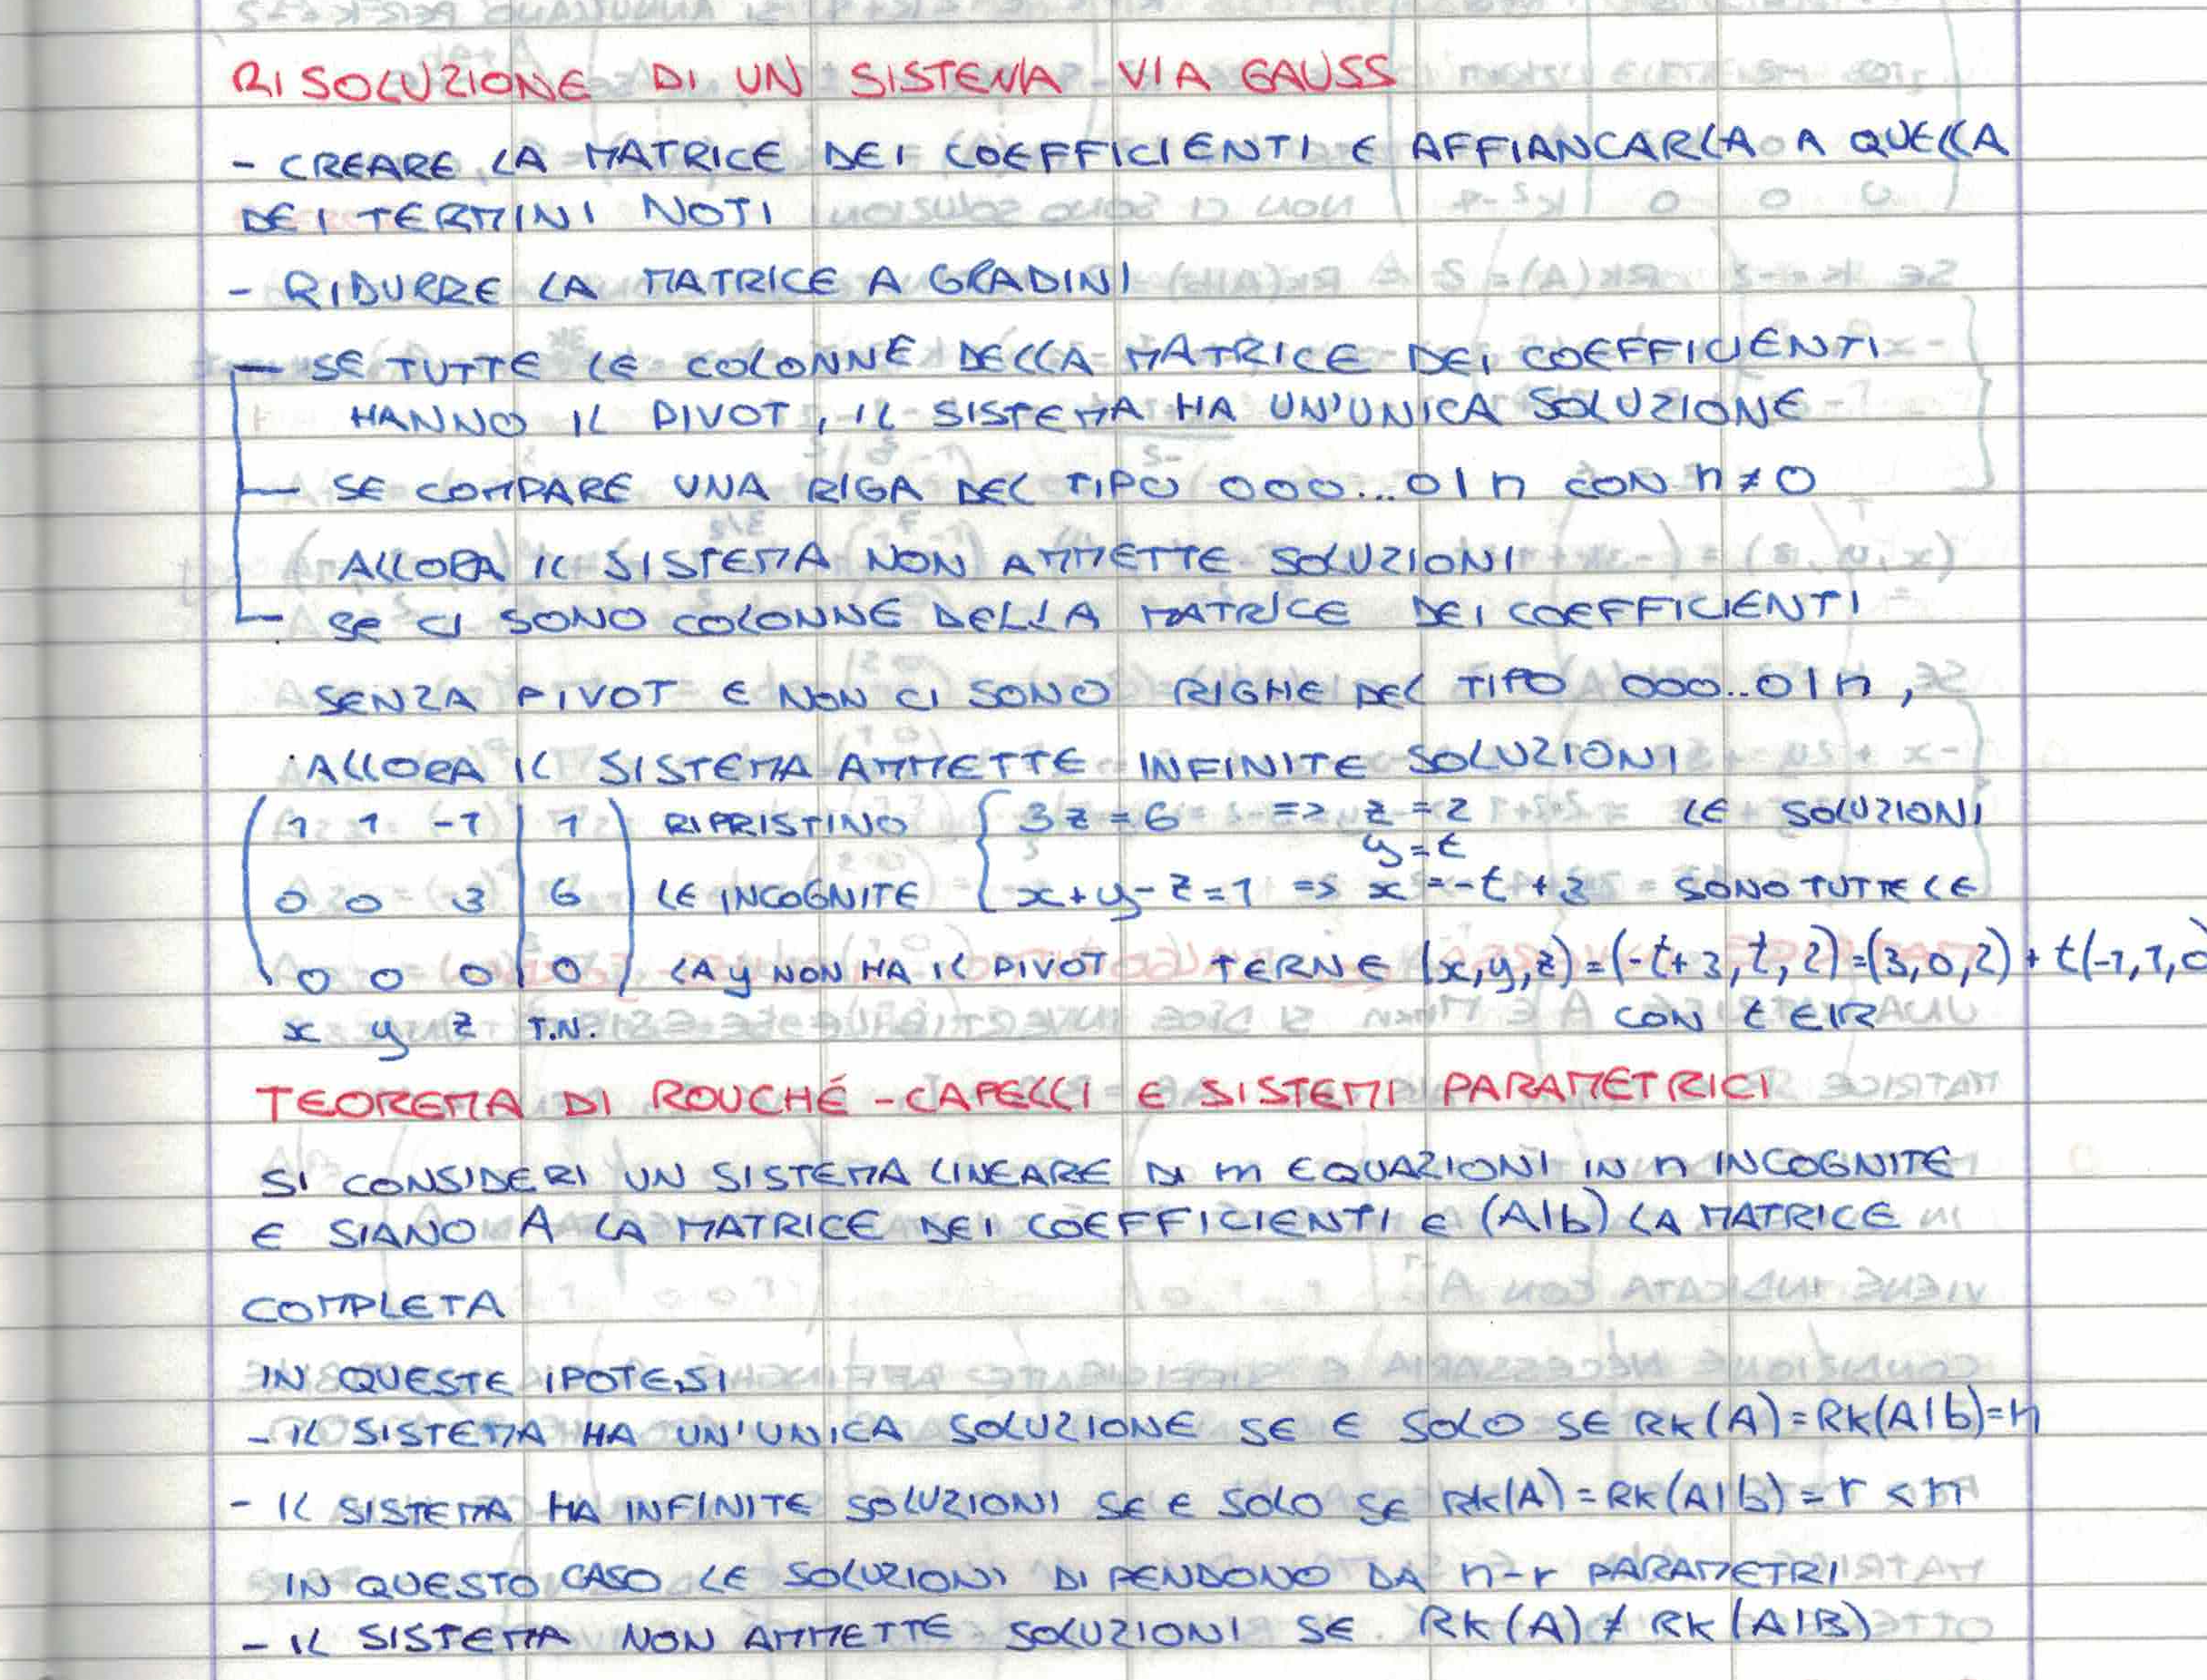 RISOLUZIONE DI UN SISTEMA VIA GAUSS
- CREARE LA MATRICE DEI COEFFICIENTI E AFFIANCARLA A QUELLA
DEI TERMINI NOTI
- RIDURRE LA MATRICE A GRADINI
— SE TUTTE LE COLONNE DELLA MATRICE DEI COEFFICIENTI
HANNO IL PIVOT, IL SISTEMA HA UN'UNICA SOLUZIONE
— SE COMPARE UNA RIGA DEL TIPO 000...0|n CON n≠0
ALLORA IL SISTEMA NON AMMETTE SOLUZIONI
— SE CI SONO COLONNE DELLA MATRICE DEI COEFFICIENTI
SENZA PIVOT E NON CI SONO RIGHE DEL TIPO 000..0|n,
ALLORA IL SISTEMA AMMETTE INFINITE SOLUZIONI
1 1 -1 | 1 RIPRISTINO { 3z=6 => z=2 LE SOLUZIONI
y=t
0 0 3 | 6 LE INCOGNITE x+y-z=1 => x=-t+3 SONO TUTTE LE
0 0 0 | 0 LA y NON HA IL PIVOT TERNE (x,y,z)=(-t+3,t,2)=(3,0,2)+t(-1,1,0
x y z T.N. CON t∈IR
TEOREMA DI ROUCHÉ-CAPELLI E SISTEMI PARAMETRICI
SI CONSIDERI UN SISTEMA LINEARE DI m EQUAZIONI IN n INCOGNITE
E SIANO A LA MATRICE DEI COEFFICIENTI E (A|b) LA MATRICE
COMPLETA
IN QUESTE IPOTESI
- IL SISTEMA HA UN'UNICA SOLUZIONE SE E SOLO SE RK(A)=RK(A|b)=n
- IL SISTEMA HA INFINITE SOLUZIONI SE E SOLO SE RK(A)=RK(A|b)=r<n
IN QUESTO CASO LE SOLUZIONI DIPENDONO DA n-r PARAMETRI
- IL SISTEMA NON AMMETTE SOLUZIONI SE RK(A)≠RK(A|B)